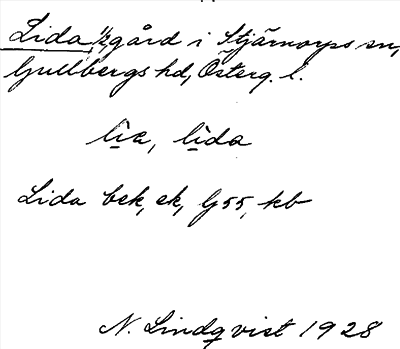 Lida, 1/2 gård i Stjärnorps sn,
Gullbergs hd, Österg. l.
lìa, lìda
Lida bek, ek, G55, kb
N. Lindqvist 1928